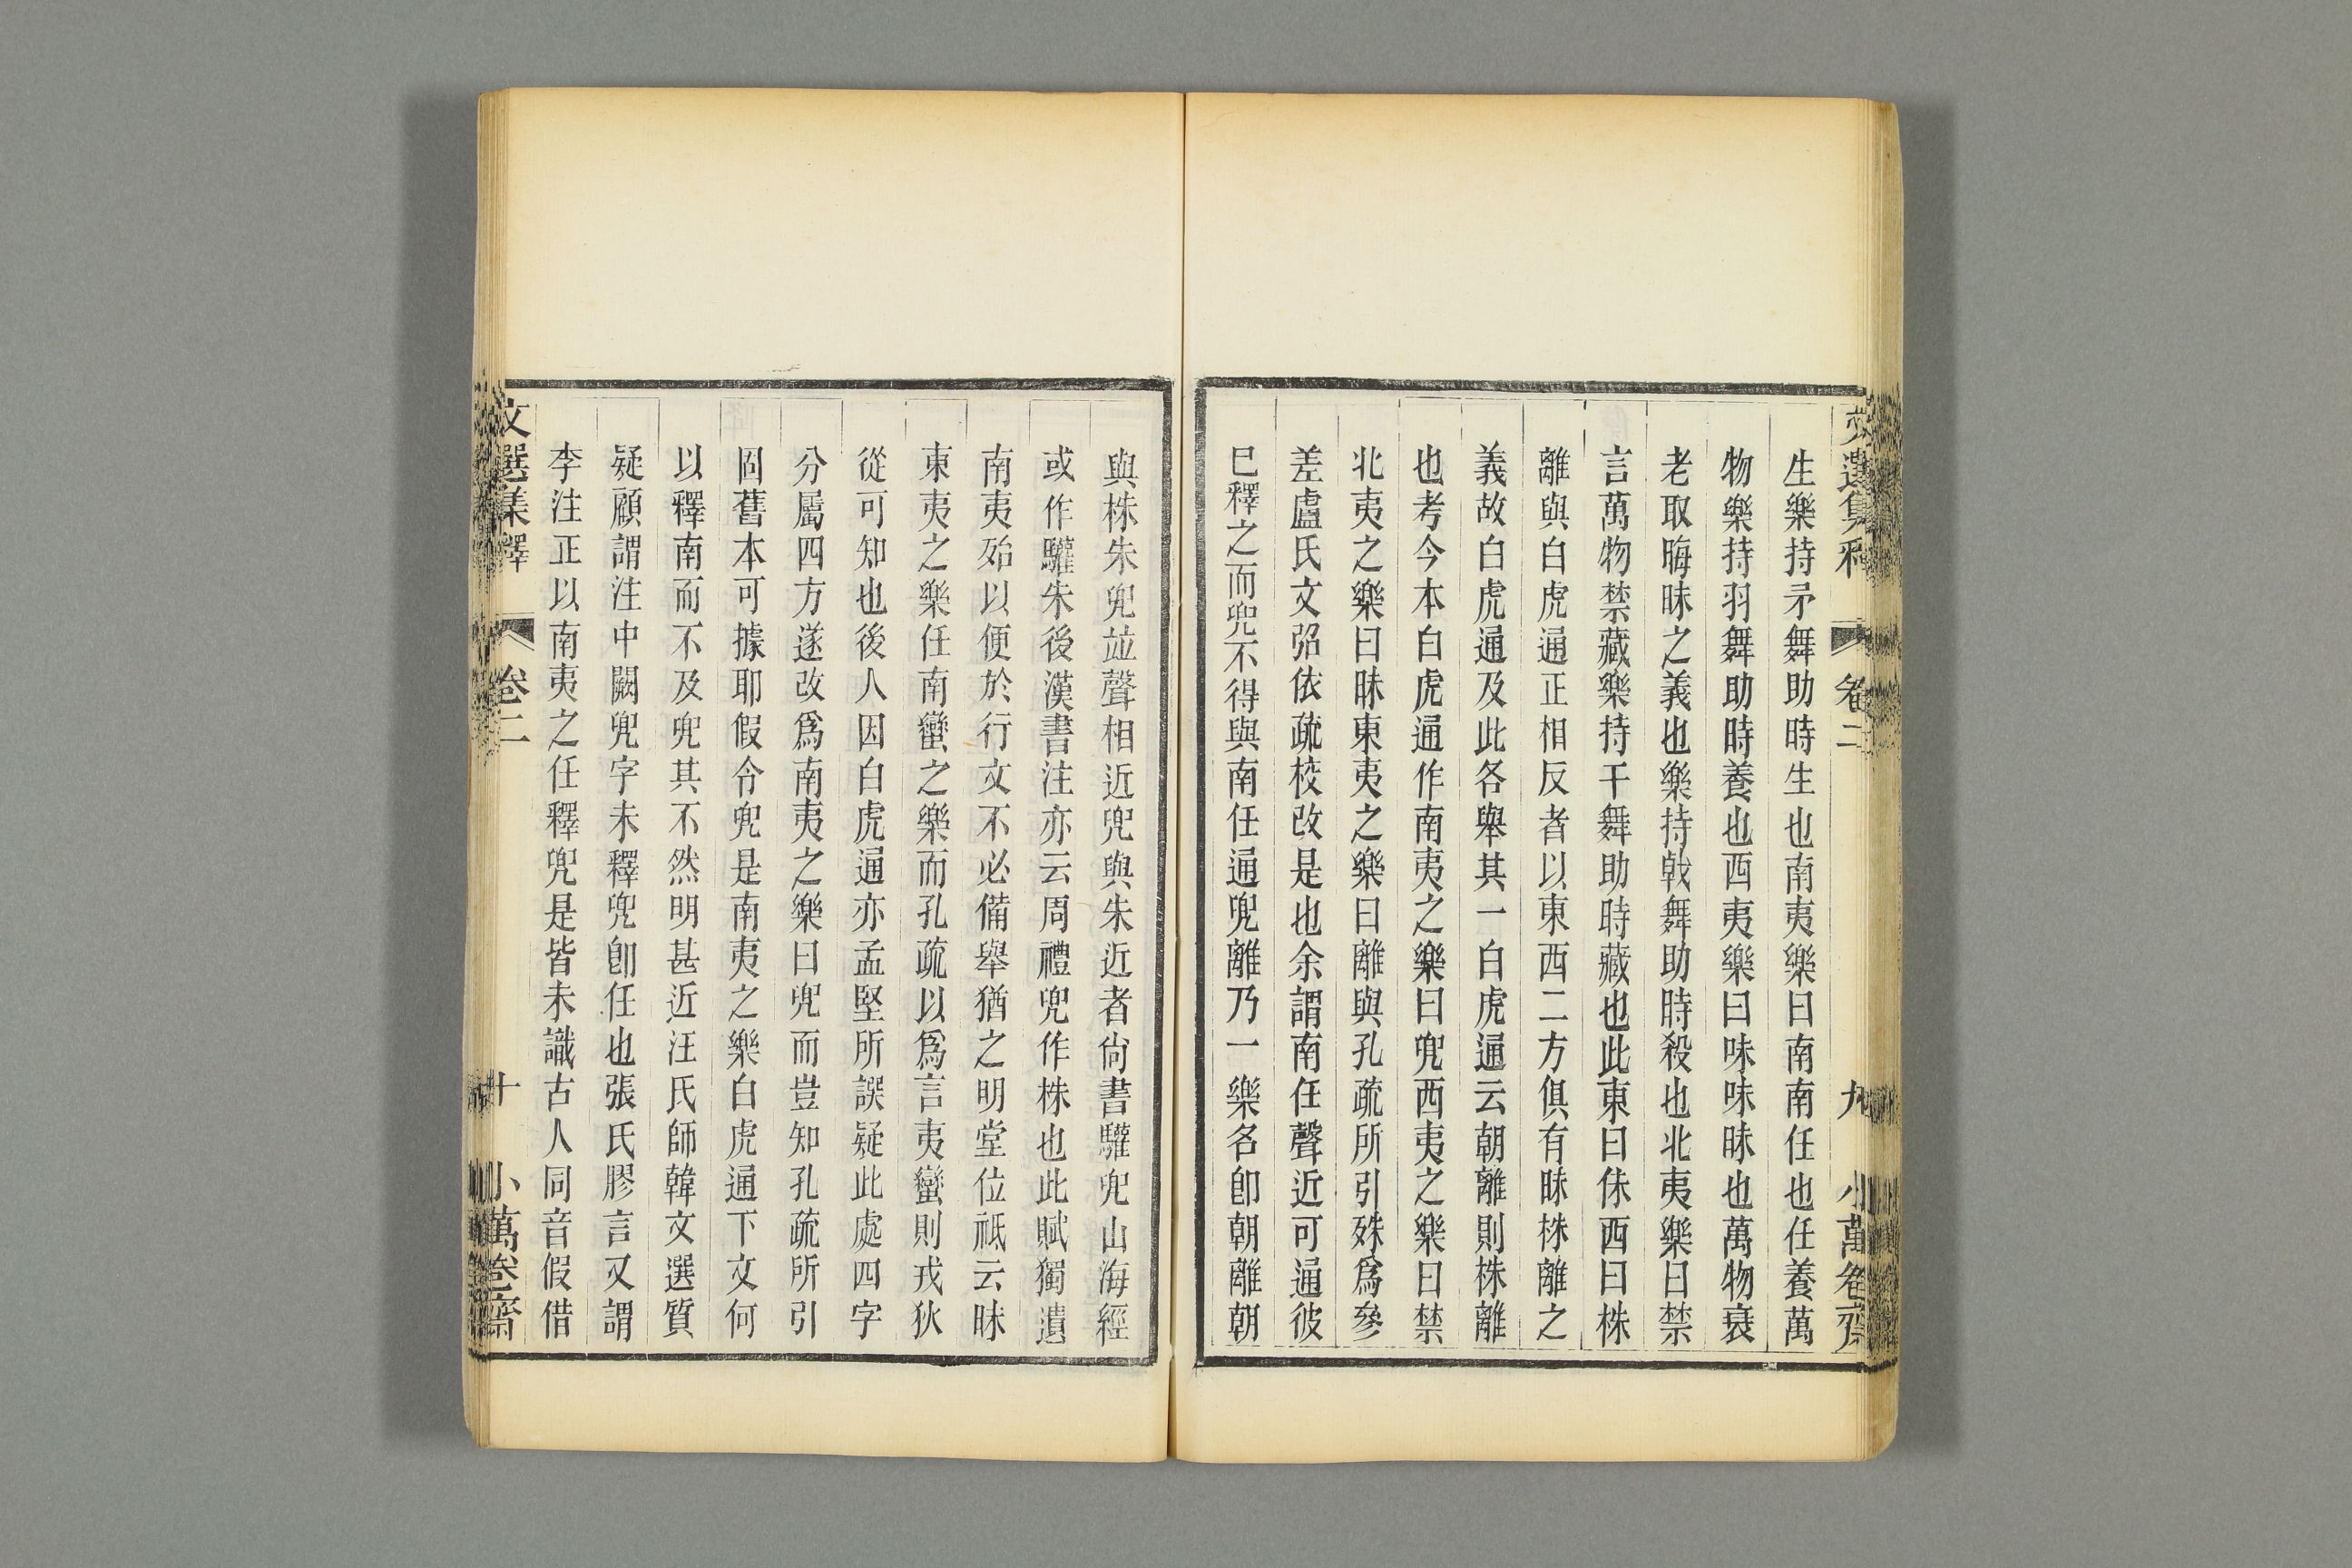 文選集釋 卷二 九 小萬卷齋
生樂持矛舞助時生也南夷樂曰南南任也任養萬
物樂持羽舞助時養也西夷樂曰味味昧也萬物衰
老取晦昧之義也樂持戟舞助時殺也北夷樂曰禁
言萬物禁藏樂持干舞助時藏也此東曰佅西曰株
離與白虎通正相反者以東西二方俱有昧株離之
義故白虎通及此各舉其一白虎通云朝離則株離
也考今本白虎通作南夷之樂曰兜西夷之樂曰禁
北夷之樂曰昧東夷之樂曰離與孔疏所引殊爲參
差盧氏文弨依疏校改是也余謂南任聲近可通彼
已釋之而兜不得與南任通兜離乃一樂名卽朝離朝
與株朱兜竝聲相近兜與朱近者尙書驩兜山海經
或作驩朱後漢書注亦云周禮兜作株也此賦獨遺
南夷殆以便於行文不必備舉猶之明堂位祗云昧
東夷之樂任南蠻之樂而孔疏以爲言夷蠻則戎狄
從可知也後人因白虎通亦孟堅所誤疑此處四字
分屬四方遂改爲南夷之樂曰兜而豈知孔疏所引
固舊本可據耶假令兜是南夷之樂白虎通下文何
以釋南而不及兜其不然明甚近汪氏師韓文選質
疑顧謂注中闕兜字未釋兜卽任也張氏膠言又謂
李注正以南夷之任釋兜是皆未識古人同音假借
文選集釋 卷二 十 小萬卷齋